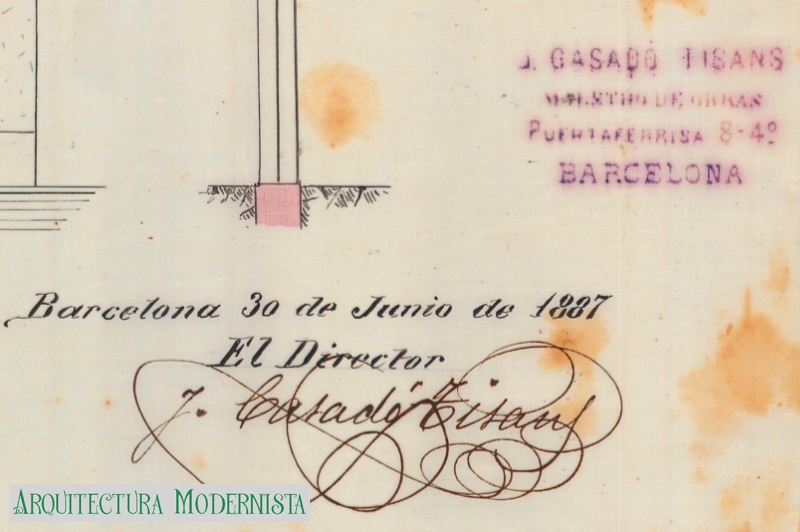 J. CASADÓ TISANS
MAESTRO DE OBRAS
PUERTAFERRISA 8-4º
BARCELONA
Barcelona 30 de Junio de 1887
El Director
J. Casadó Tisans
ARQUITECTURA MODERNISTA